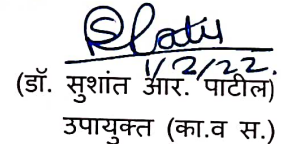 1/2/22.
(डॉ. सुशांत आर. पाटील)
उपायुक्त (का.व स.)